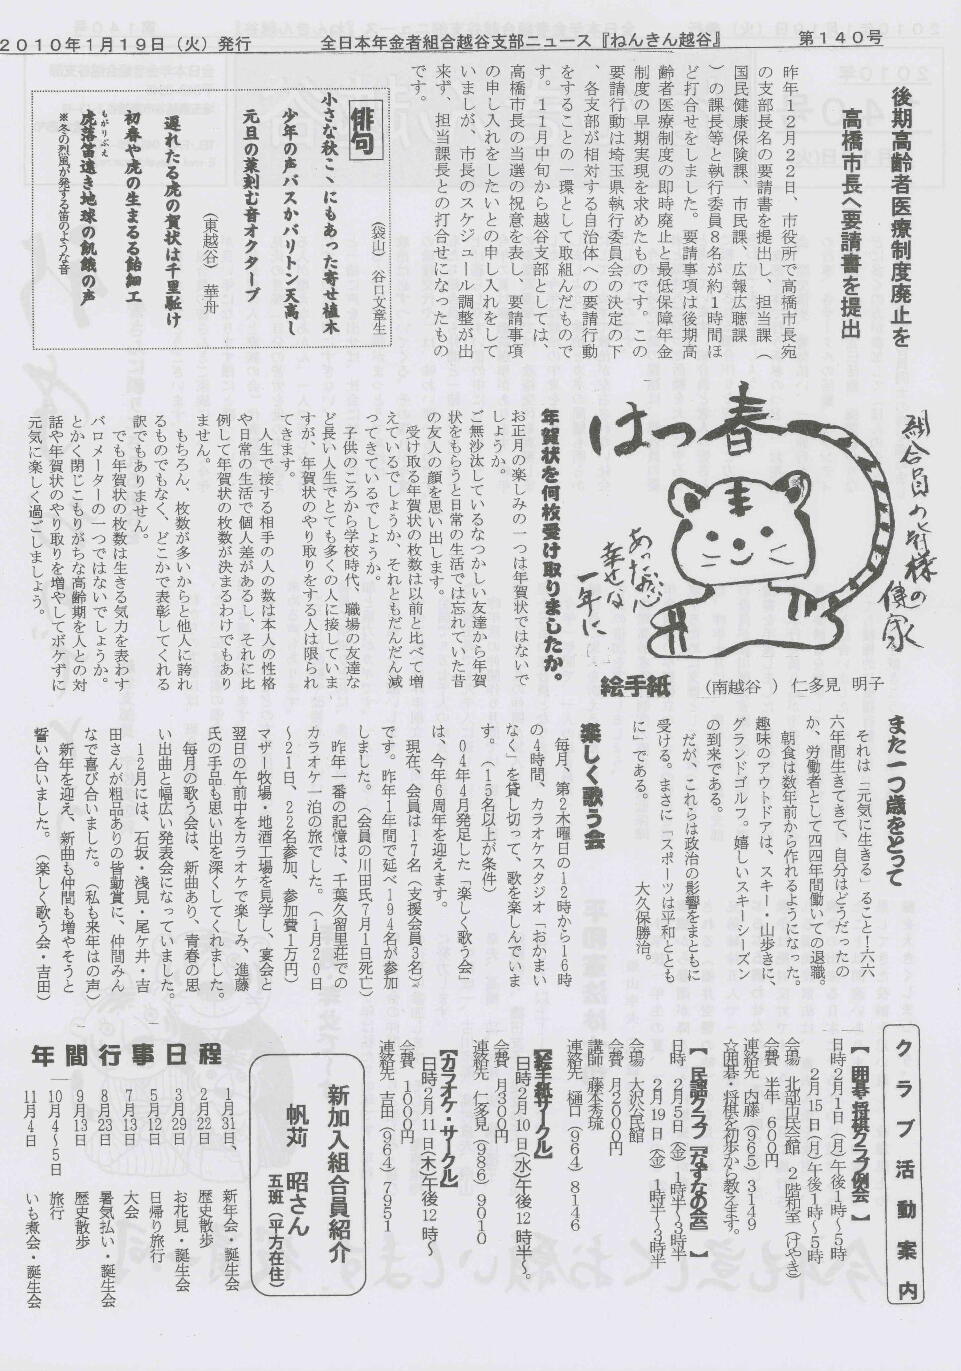 2010年1月19日（火）発行　全日本年金者組合越谷支部ニュース『ねんきん越谷』　第140号
後期高齢者医療制度廃止を
高橋市長へ要請書を提出
昨年12月22日、市役所で高橋市長宛
の支部長名の要請書を提出し、担当課（
国民健康保険課、市民課、広報広聴課
）の課長等と執行委員8名が約1時間ほ
ど打合せをしました。要請事項は後期高
齢者医療制度の即時廃止と最低保障年金
制度の早期実現を求めたものです。この
要請行動は埼玉県執行委員会の決定の下
、各支部が相対する自治体への要請行動
をすることの一環として取組んだもので
す。11月中旬から越谷支部としては、
高橋市長の当選の祝意を表し、要請事項
の申し入れをしたいとの申し入れをして
いましたが、市長のスケジュール調整が出
来ず、担当課長との打合せになったもの
です。
俳句
（袋山）　谷口文章生
小さな秋こゝにもあった寄せ植木
少年の声バスかバリトン天高し
元旦の菜刻む音オクターブ
（東越谷）　華舟
遅れたる虎の賀状は千里駈け
初春や虎の生まるる飴細工
もがりぶえ
虎落笛遠き地球の飢餓の声
※冬の烈風が発する笛のような音
組合員の皆様の
健康
はつ春
あったか心
幸せな
一年に
絵手紙　（南越谷　）　仁多見　明子
年賀状を何枚受け取りましたか。
お正月の楽しみの一つは年賀状ではないで
しょうか。
ご無沙汰しているなつかしい友達から年賀
状をもらうと日常の生活では忘れていた昔
の友人の顔を思い出します。
受け取る年賀状の枚数は以前と比べて増
えているでしょうか、それともだんだん減
ってきているでしょうか。
子供のころから学校時代、職場の友達な
ど長い人生でとても多くの人に接していま
すが、年賀状のやり取りをする人は限られ
てきます。
人生で接する相手の人の数は本人の性格
や日常の生活で個人差があるし、それに比
例して年賀状の枚数が決まるわけでもあり
ません。
もちろん、枚数が多いからと他人に誇れ
るものでもなく、どこかで表彰してくれる
訳でもありません。
でも年賀状の枚数は生きる気力を表わす
バロメーターの一つではないでしょうか。
とかく閉じこもりがちな高齢期を人との対
話や年賀状のやり取りを増やしてボケずに
元気に楽しく過ごしましょう。
また一つ歳をとって
それは「元気に生きる」ること！六六
六年間生きてきて、自分はどうだったの
か、労働者として四四年間働いての退職。
朝食は数年前から作れるようになった。
趣味のアウトドアは、スキー・山歩きに、
グランドゴルフ。嬉しいスキーシーズン
の到来である。
だが、これらは政治の影響をまともに
受ける。まさに「スポーツは平和ととも
に」である。　　　大久保勝治。
楽しく歌う会
毎月、第2木曜日の12時から16時
の4時間、カラオケスタジオ「おかまい
なく」を貸し切って、歌を楽しんでいま
す。（15名以上が条件）
04年4月発足した「楽しく歌う会」
は、今年6周年を迎えます。
現在、会員は17名（支援会員3名）
です。昨年1年間で延べ194名が参加
しました。（会員の川田氏7月1日死亡）
昨年一番の記憶は、千葉久留里荘での
カラオケ一泊の旅でした。（1月20日
～21日、22名参加、参加費1万円）
マザー牧場・地酒工場を見学し、宴会と
翌日の午前中をカラオケで楽しみ、進藤
氏の手品も思い出を深くしてくれました。
毎月の歌う会は、新曲あり、青春の思
い出曲と幅広い発表会になっていました。
12月には、石坂・浅見・尾ケ井・吉
田さんが粗品ありの皆勤賞に、仲間みん
なで喜び合いました。（私も来年はの声）
新年を迎え、新曲も仲間も増やそうと
誓い合いました。（楽しく歌う会・吉田）
クラブ活動案内
【囲碁・将棋クラブ例会】
日時2月1日（月）午後1時～5時
2月15日（月）午後1時～5時
会場　北部市民会館　2階和室（けやき）
会費　半年　600円
連絡先　内藤（965）3149
☆囲碁・将棋を初歩から教えます。
【民謡クラブ「なずなの会」】
日時　2月5日（金）　1時半～3時半
2月19日（金）　1時半～3時半
会場　大沢公民館
会費　月2000円
講師　藤本秀琉
連絡先　樋口（964）8146
【絵手紙サークル】
日時2月10日（水）午後12時半～。
会費　月300円
連絡先　仁多見（986）9010
【カラオケ・サークル】
日時2月11日（木）午後12時～
会費　1000円
連絡先　吉田（964）7951
新加入組合員紹介
帆苅　昭さん
五班（平方在住）
年間行事日程
1月31日、　新年会・誕生会
2月22日　歴史散歩
3月29日　お花見・誕生会
5月12日　日帰り旅行
7月13日　大会
8月23日　暑気払い・誕生会
9月13日　歴史散歩
10月4～5日　旅行
11月4日　いも煮会・誕生会